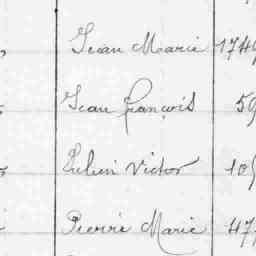 Jean Marie 174
Jean françois 59
Julien Victor 10
Pierre Marie 47